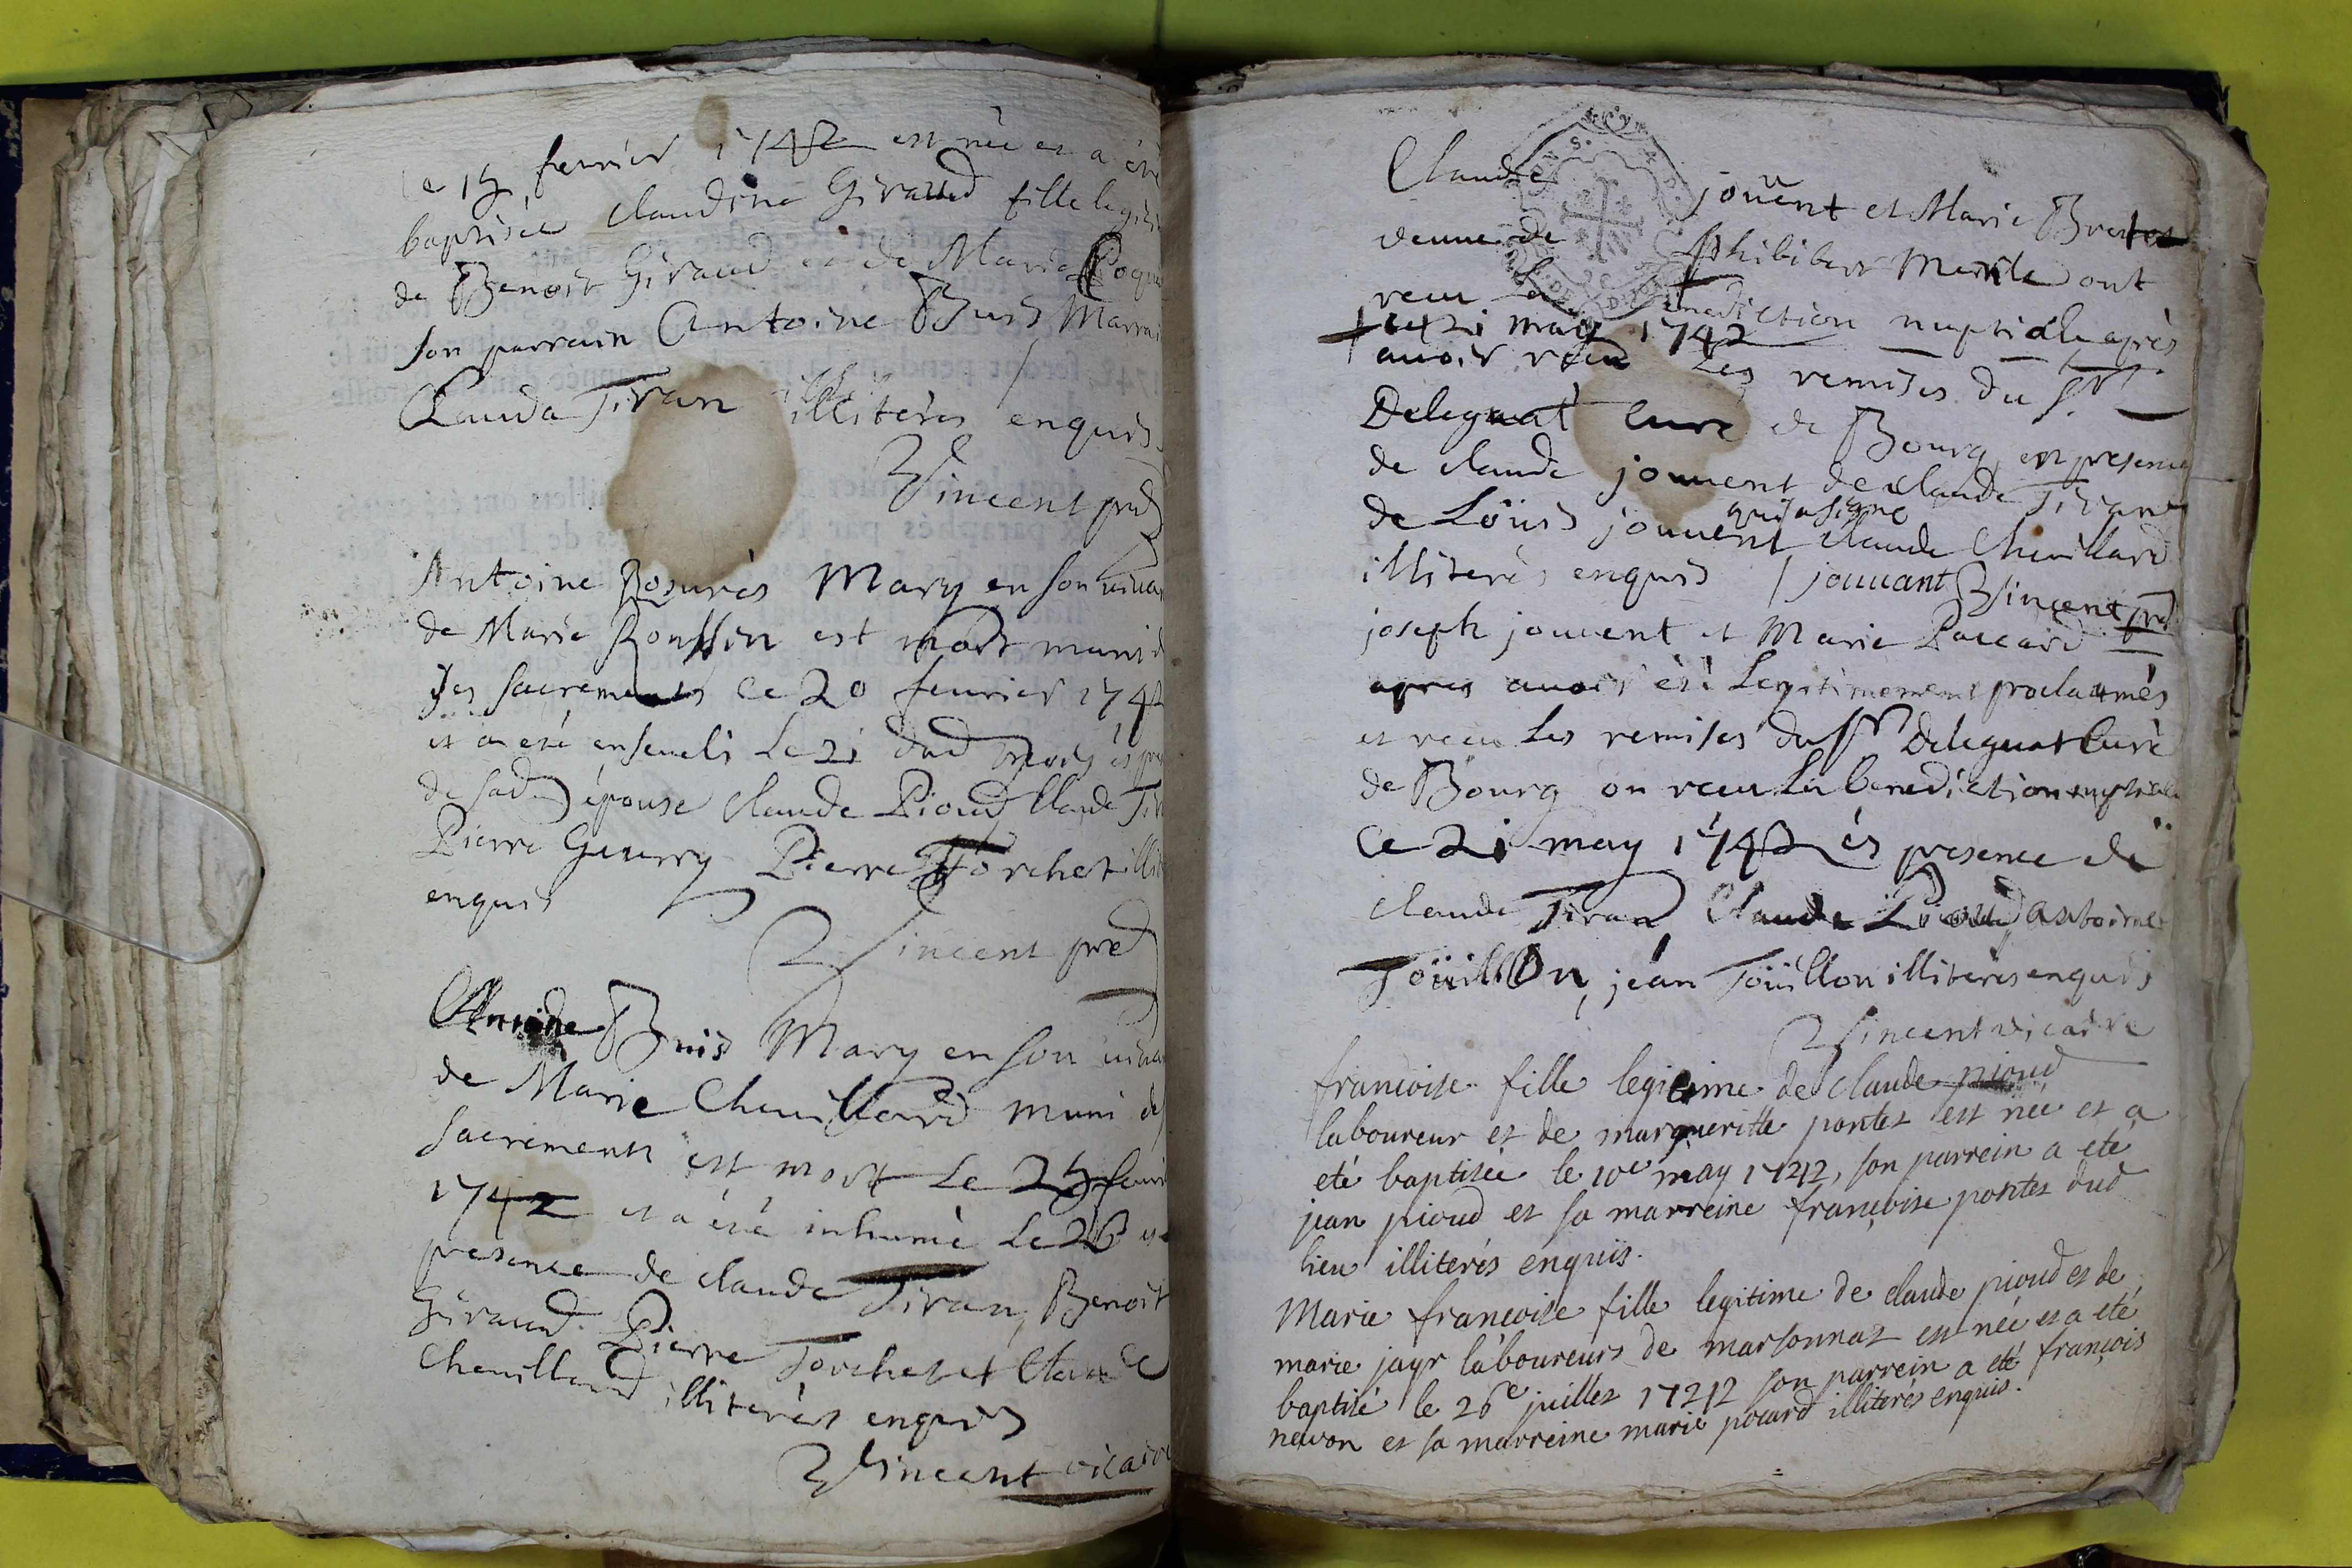 le 15 fevrier 1742 est née et a été
baptisée claudine Giraud fille legiti
de Benoit Giraud et de Marie Poque
son parrain Antoine Buis Marrai
Clauda Tiran illiterès enquis
Vincent pred
Antoine Mary en son viva
de Marie Roussin est mort muni d
des sacrements ce 20 feurier 1742
et a eté enseueli Le 21 dud mois es pre
de sad épouse claude Pioud Claude Ti
Pierre Gueurry Pierre Torchet illi
enquis
Vincent pred
Antoine Buis Mary en son viva
de Marie Cheuillard muni des
sacrements est mort Le 25 feuri
1742 et a été inhumé Le 26 es
presence de claude Tiran, Benoit
Giraud Pierre Torchet et Claude
Cheuillard illiterès enquis
Vincent vicaire
Claude jouent et Marie
veuue de Philibert Merle ont
receu La benediction nuptiale après
ce 21 may 1742
auoir receu Les remises du Sr
Deleguat Curé de Bourg en presence
de claude jouuent de claude Tiran
de Loüis jouuent qui a signé claude Cheuillard
illiterès enquis / jouuant Vincent pred
joseph jouuent et Marie Paccard
apres auoir été Legitimement proclamés
et receu Les remises du Sr Deleguat Curé
de Bourg on receu La benediction nuptiale
Ce 21 may 1742 és presence de
claude Tiran Claude Pioud antoine
Toüillon, jean Toüillon illiterès enquis
Vincent vicaire
francoise fille legitime de claude pioud
laboureur et de margueritte pontet est née et a
eté baptisée le 10e may 1742, son parrein a eté
jean pioud et sa marreine françoise pontet dud
lieu illiterés enquis.
Marie francoise fille legitime de claude pioud et de
marie jayr laboureurs de marsonnat est née et a eté
baptisé le 26e juillet 1742 son parrein a eté françois
neuvon et sa marreine marie pocard illiterés enquis.